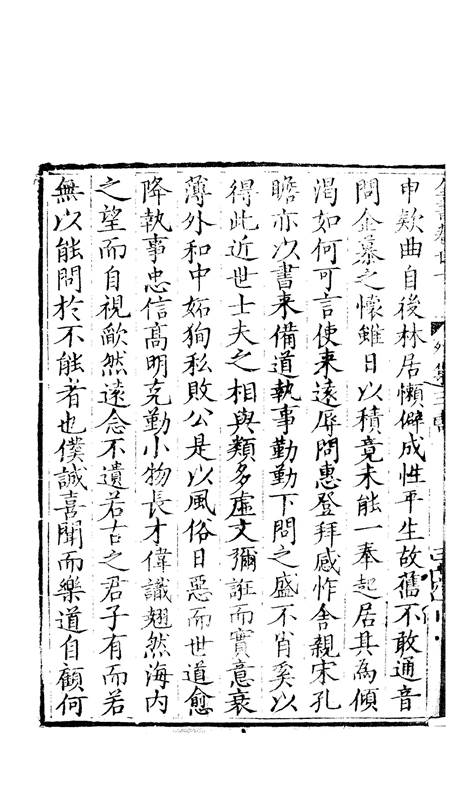 申欵曲自後林居懶僻成性平生故舊不敢通音
問企慕之懷雖日以積竟未能一奉起居其為傾
渇如何可言使来遠辱問惠登拜感怍舍親宋孔
瞻亦以書来備道執事勤勤下問之盛不肖奚以
得此近世士夫之相與類多虛文彌誑而實意衰
薄外和中妬狥私敗公是以風俗日惡而世道愈
降執事忠信高明克勤小物長才偉識翹然海内
之望而自視歉然遠念不遺若古之君子有而若
無以能問於不能者也僕誠喜聞而樂道自顧何